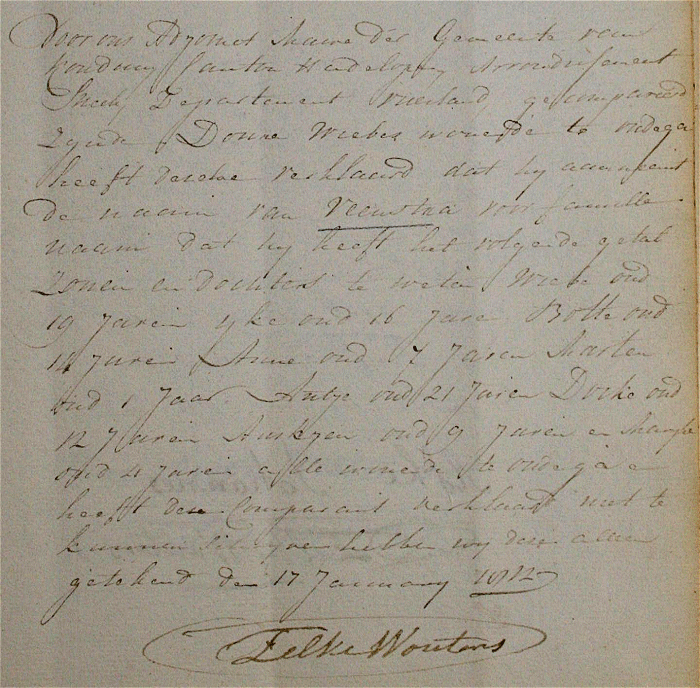 Voor ons Adjoinct Maire der Gemeente van
Koudum Canton Hindelopen Arrondissement
Sneek Departement Vriesland gecompareerd
zynde Douwe Wiebes wonende te oudega
heeft dezelve verklaard dat hy aanneemt
de naam van Veenstra voor familie
naam dat hy heeft het volgende getal
Zonen en dochters te weten Wiebe oud
19 Jaren yke oud 16 Jaren Botte oud
14 Jaren Anne oud 7 Jaren Marten
oud 1 Jaar Antje oud 21 Jaren Doeke oud
12 Jaren oud 9 Jaren en
oud 4 Jaren alle wonende te oudega en
heeft deze Comparant verklaard niet te
kunnen schryven hebben wy deze alleen
getekend den 17 January 1812
Eelke Wouters